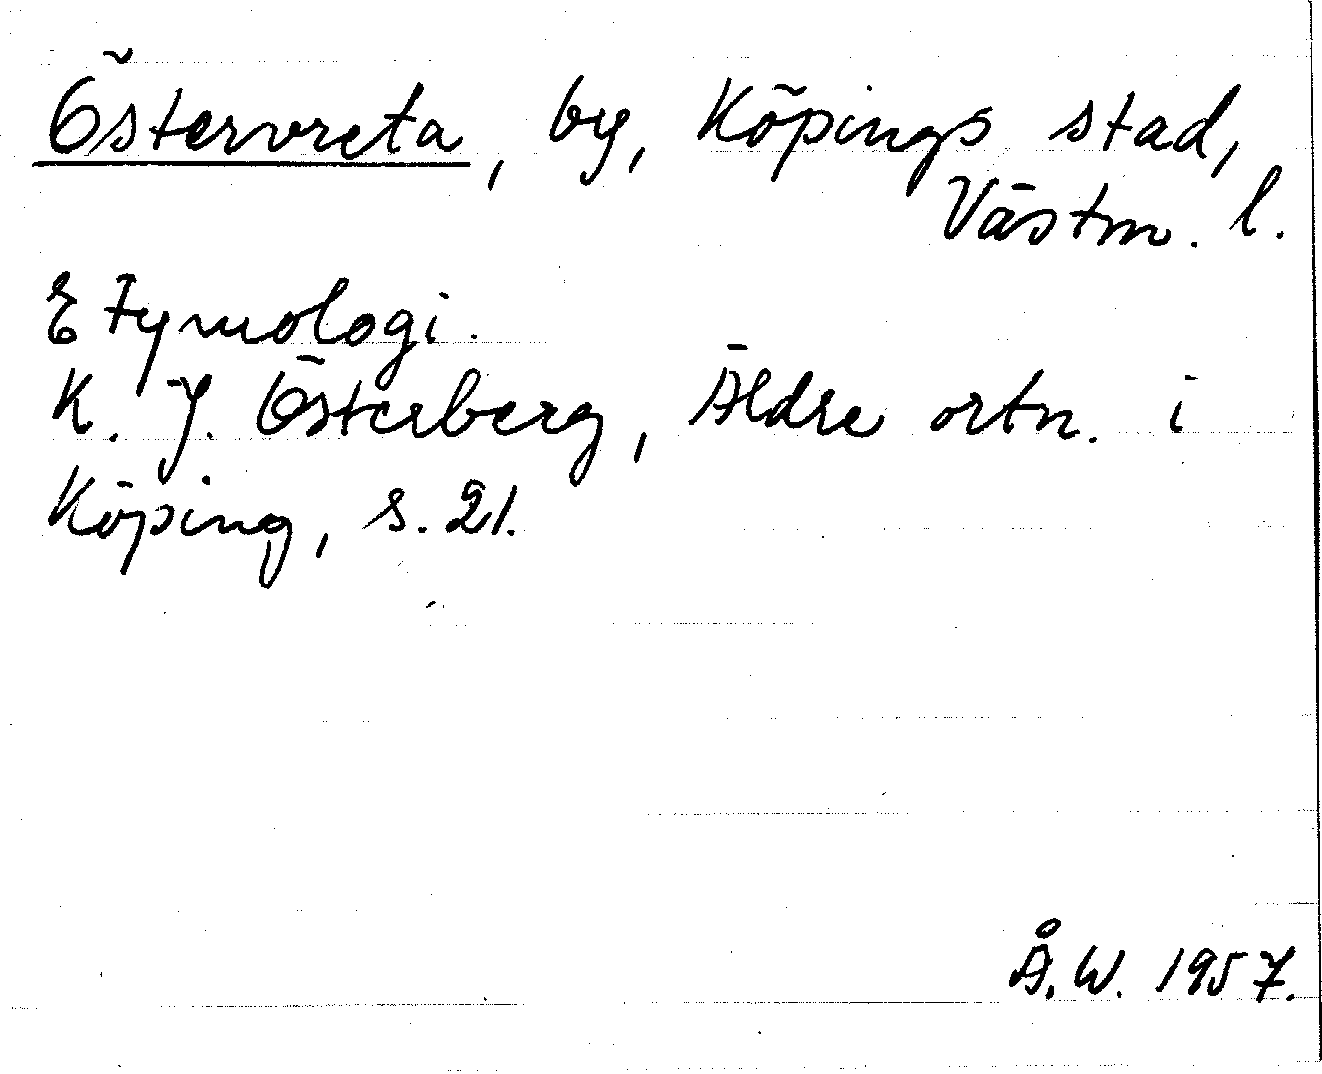 Östervreta, by, Köpings stad,
Västm. l.
Etymologi.
K. J. Österberg, Äldre ortn. i
Köping, s. 21.
Å. W. 1957.